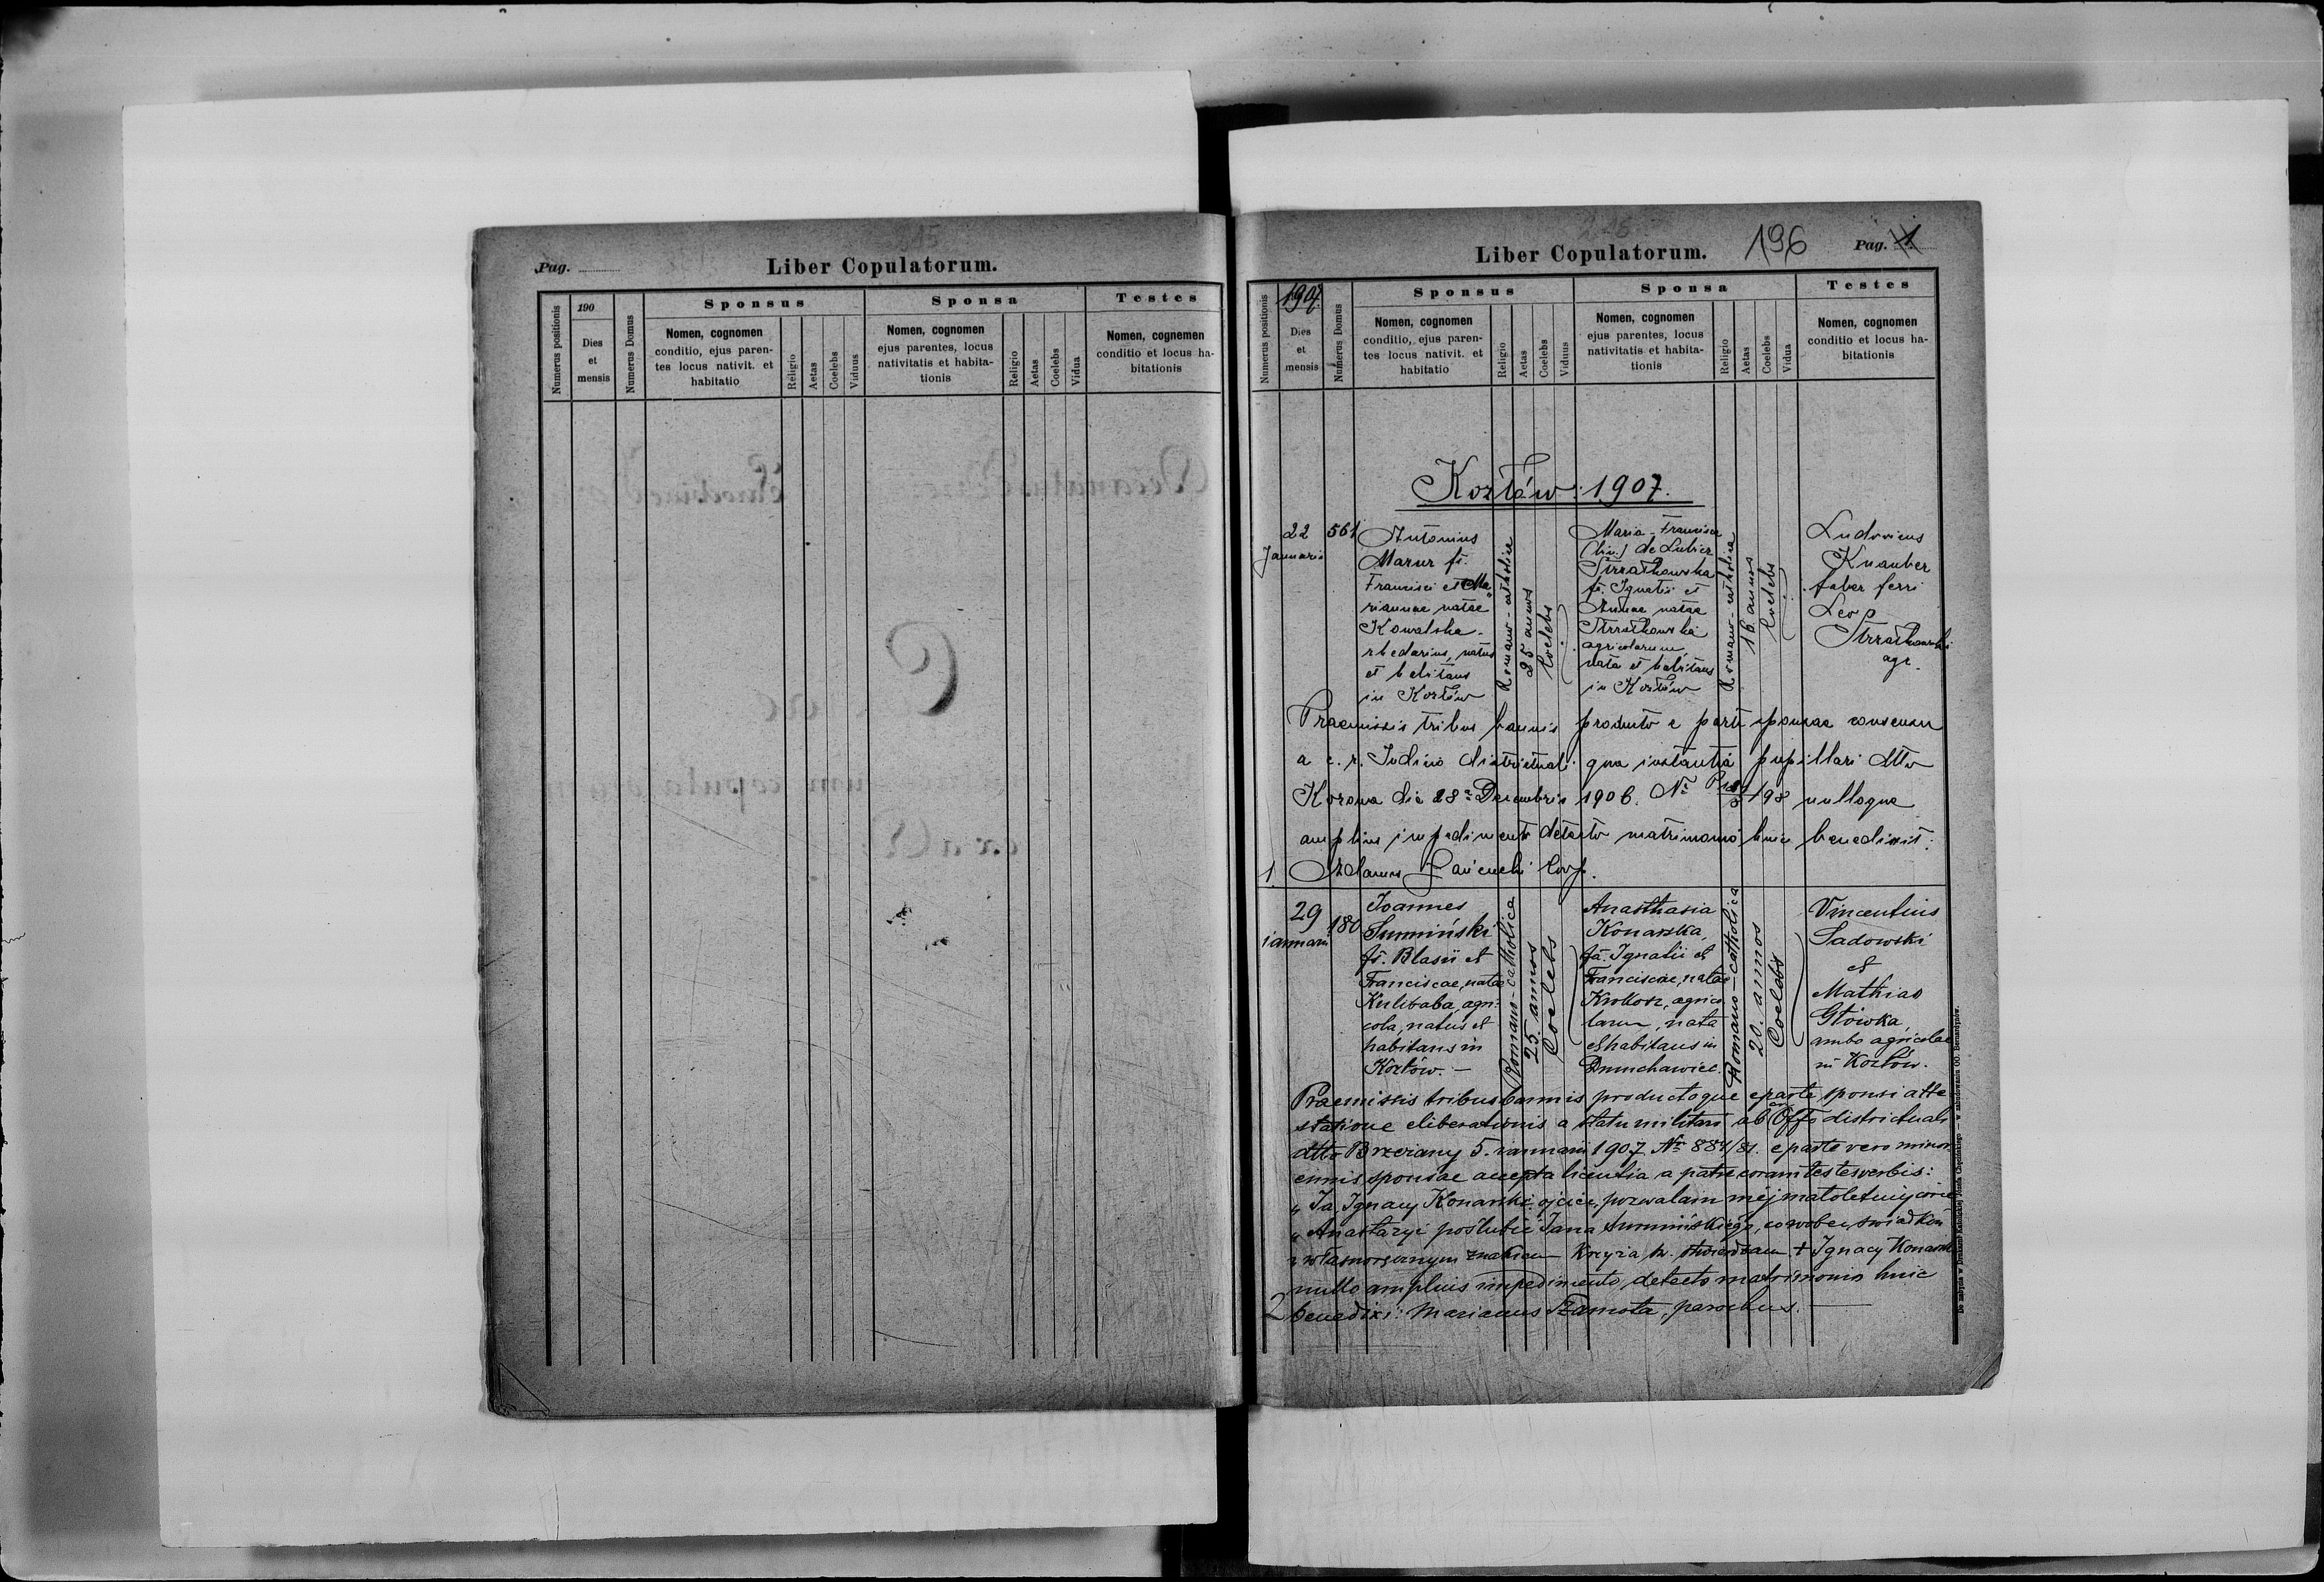 Pag.
Liber Copulatorum.
Numerus positionis
190
Dies
et
mensis
Numerus Domus
Sponsus
Nomen, cognomen
conditio, ejus paren-
tes locus nativit. et
habitatio
Religio
Aetas
Coelebs
Viduus
Sponsa
Nomen, cognomen
ejus parentes, locus
nativitatis et habita-
tionis
Religio
Aetas
Coelebs
Vidua
Testes
Nomen, cognemen
conditio et locus ha-
bitationis
Liber Copulatorum.
196
Pag. 1
Numerus positionis
1907
Dies
et
mensis
Numerus Domus
Sponsus
Nomen, cognomen
conditio, ejus paren-
tes locus nativit. et
habitatio
Religio
Aetas
Coelebs
Viduus
Sponsa
Nomen, cognomen
ejus parentes, locus
nativitatis et habita-
tionis
Religio
Aetas
Coelebs
Vidua
Testes
Nomen, cognomen
conditio et locus ha-
bitationis
Kozłów 1907.
22
Januarii
561
Antonius
Mazur fs.
Francisci et Ma
riannae natae
Kowalska
natus
et habitans
in Kozłów
Romano-catholica
25 annos
Coelebs
Maria-Francisca
(bin.) de Lubicz
Strzałkowska
fa. Ignatii et
Annae natae
Strzałkowska
agricolarum,
nata et habitans
in Kozłów
Romano-catholica
16 annos
Coelebs
Ludovicus
Knauber
faber ferri
Leo
Strzałkowski
agr.
Praemissis tribus bannis producto e parte sponsae consensu
a c. r. Judicio districtuali qua instantia pupillari dtto
Kozowa die 28ª Decembris 1906. Nº 198 nulloque
amplius impedimento detecto matrimonio huic benedixit:
1. Adamus Łańcucki Coop.
29
ianuarii
180
Joannes
Sumiński
fs. Blasii et
Franciscae, natae
Kulibaba, agri-
cola, natus et
habitans in
Kozłów. —
Romano-catholica
25. annos
Coelebs
Anasthasia
Konarska,
fa. Ignatii et
Franciscae, natae
Krokosz, agrico
larum, nata
et habitans in
Dmuchawiec.
Romano-catholica
20. annos
Coelebs
Vincentius
Sadowski
et
Mathias
Główka,
ambo agricolae
in Kozłów.
Praemissis tribus bannis productoque e parte sponsi atte
statione eliberationis a statu militari ab Offo districtuali
dtto Brzeżany 5. ianuarii 1907 Nr 884/81. e parte vero minor
ennis sponsae accepta licentia a patre coram testes verbis:
„Ja, Ignacy Konarski ojciec, pozwalam mej małoletniej córce
„Anastazyi poślubić Jana Sumińskiego, co wobec świadków
„własnoręcznym znakiem Krzyża św. stwierdzam + Ignacy Konarski
nullo amplius impedimento, detecto matrimonio huic
2 benedixi: Marianus Szamota, parochus.